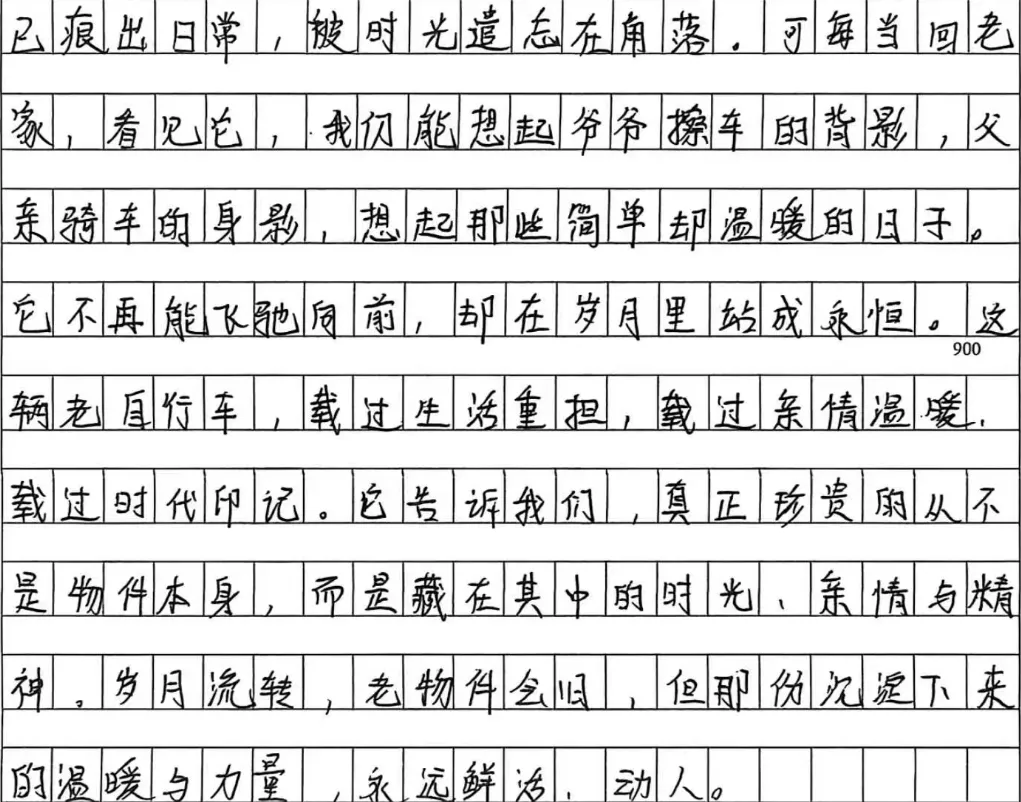 已痕出日常，被时光遗忘在角落。可每当回老
家，看见它，我仍能想起爷爷擦车的背影，父
亲骑车的身影，想起那些简单却温暖的日子。
它不再能飞驰向前，却在岁月里站成永恒。这
900
辆老自行车，载过生活重担，载过亲情温暖、
载过时代印记。它告诉我们，真正珍贵的从不
是物件本身，而是藏在其中的时光、亲情与精
神。岁月流转，老物件会旧，但那份沉淀下来
的温暖与力量，永远鲜活、动人。